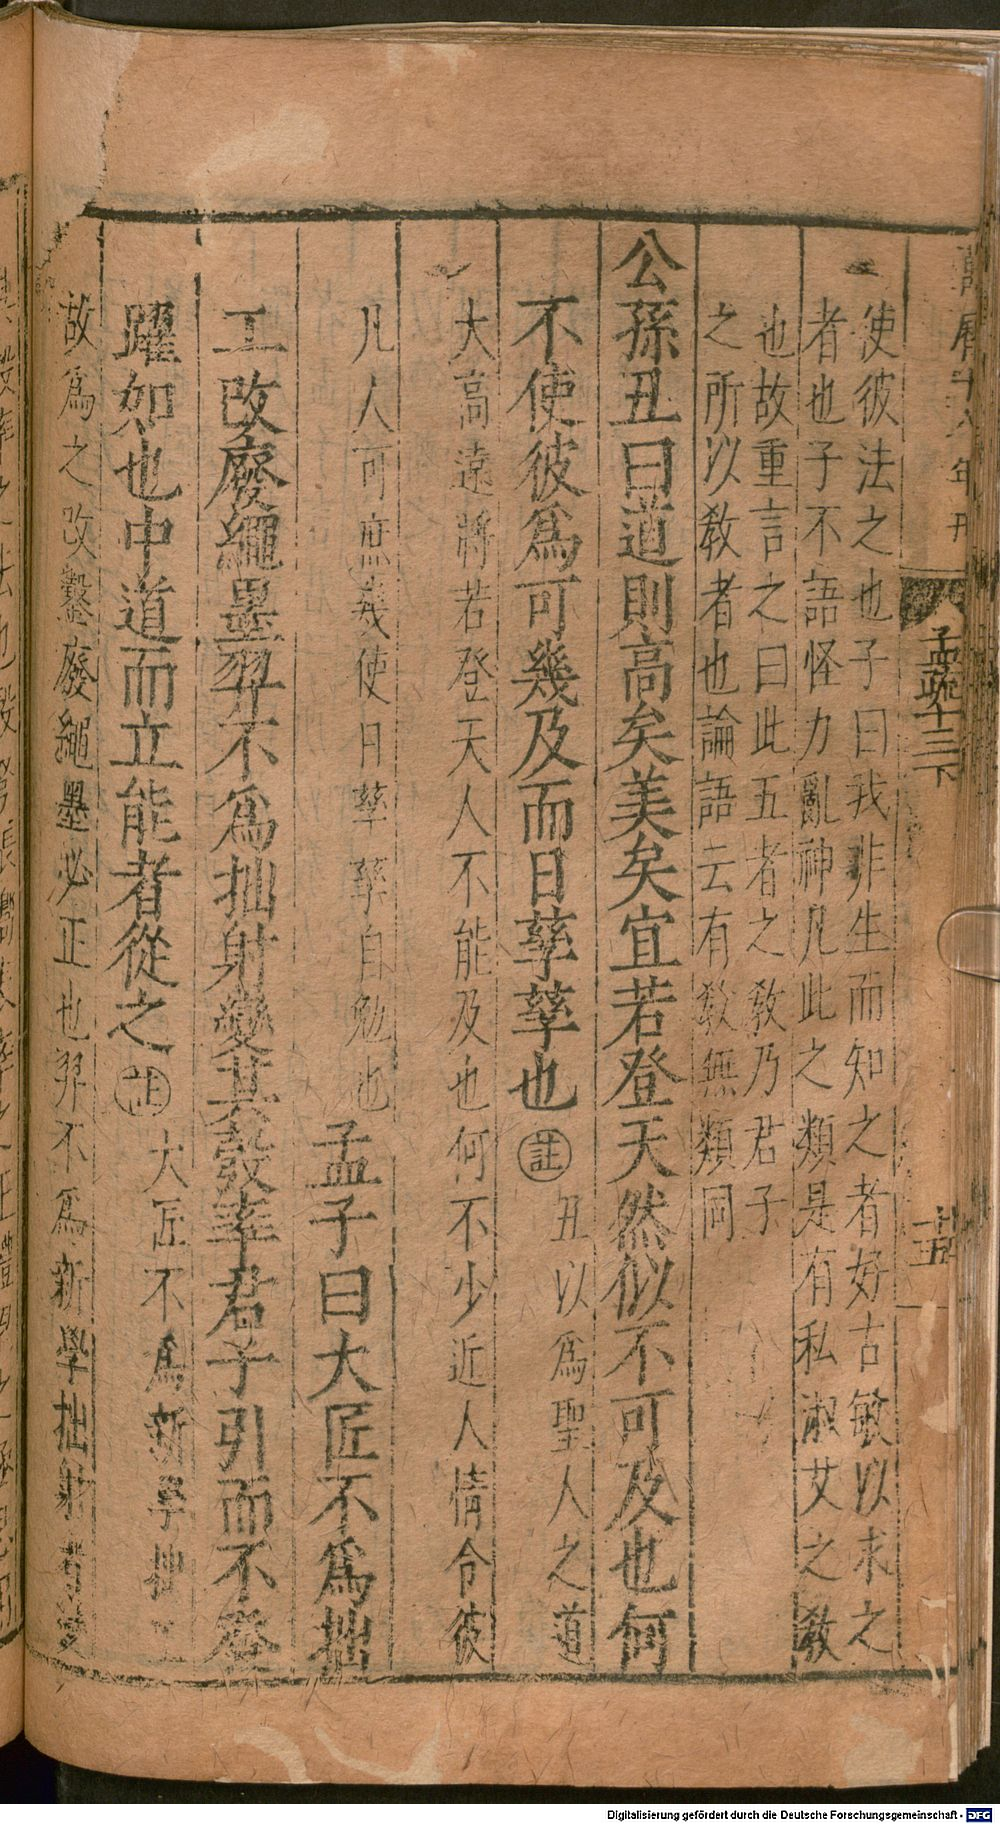 萬曆十八年刊
孟疏十三下
使彼法之也子曰我非生而知之者好古敏以求之
者也子不語怪力亂神凡此之類是有私淑艾之教
也故重言之曰此五者之教乃君子
之所以教者也論語云有教無類同
公孫丑曰道則高矣美矣宜若登天然似不可及也何
不使彼爲可幾及而日孳孳也註丑以爲聖人之道
大高遠將若登天人不能及也何不少近人情令彼
凡人可庶幾使日孳孳自勉也孟子曰大匠不爲拙
工改廢繩墨羿不爲拙射變其彀率君子引而不發
躍如也中道而立能者從之註大匠不爲新學拙工
故爲之改鑿廢繩墨必正也羿不爲新學拙射者變
Digitalisierung gefördert durch die Deutsche Forschungsgemeinschaft - DFG